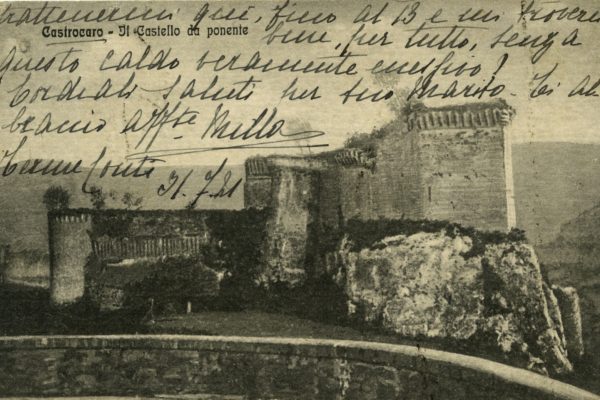 trattenermi qui, fino al 13 e mi troverei
Castrocaro - Il Castello da ponente
bene, per tutto, senza
questo caldo veramente eccessivo!
Cordiali saluti per suo Marito. Ti ab
braccio affta Milla
Terme Conti 31.7.21